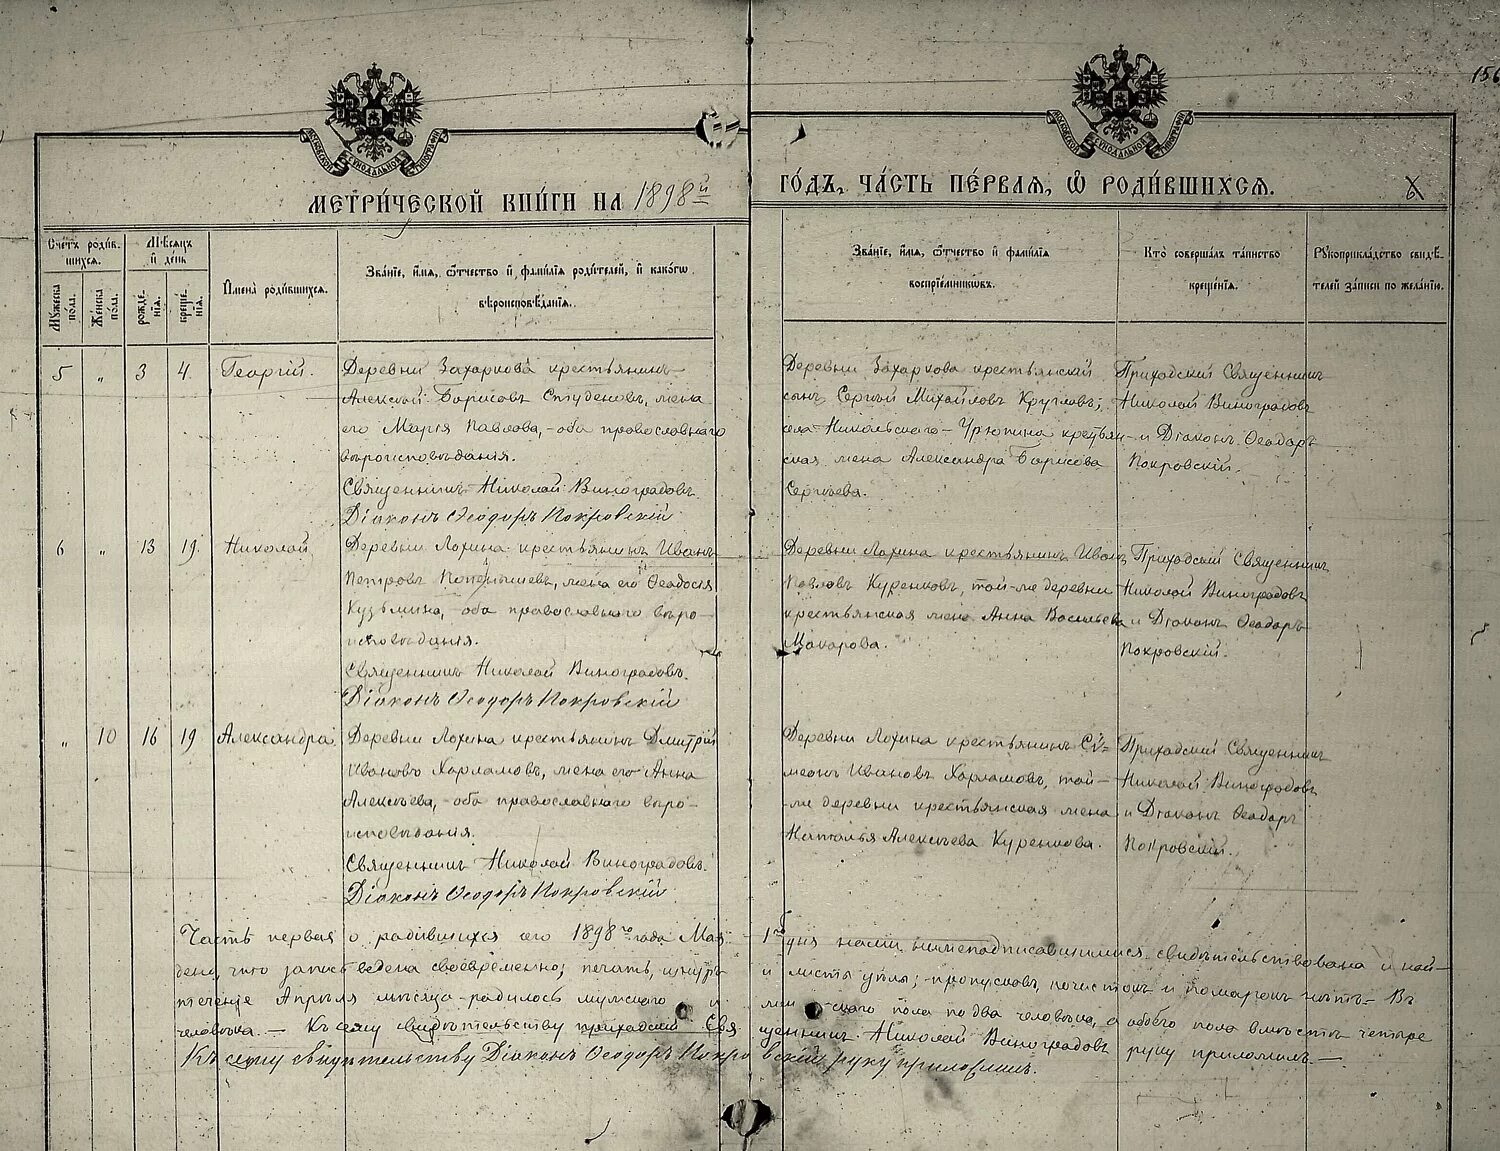 156
МОСКОВСКОЙ СѴНОДАЛЬНОЙ ТИПОГРАФІИ
МОСКОВСКОЙ СѴНОДАЛЬНОЙ ТИПОГРАФІИ
МЕТРИ́ЧЕСКОЙ КНИ́ГИ НА 1898й ГО́ДЪ, ЧА́СТЬ ПЕ́РВАЯ, Ѡ РОДИ́ВШИХСЯ.
Сче́тъ роди́вшихся.
Му́жеска по́ла.
Же́нска по́ла.
Мѣ́сяцъ и день
рожде́нія.
креще́нія.
Имена̀ роди́вшихся.
Зва́ніе, и́мя, ѻ́тчество и фами́лія роди́телей, и како́гѡ вѣроисповѣ́данія.
Зва́ніе, и́мя, ѻ́тчество и фами́лія воспріе́мникѡвъ.
Кто̀ соверша́лъ та́инство креще́нія.
Рукоприкла́дство свидѣ́телей за́писи по жела́нію.
5 " 3 4. Георгій.
Деревни Захаркова крестьянинъ
Алексѣй Борисовъ Студеновъ, жена
его Марія Павлова, - оба православнаго
вѣроисповѣданія.
Священникъ Николай Виноградовъ.
Діаконъ Ѳеодоръ Покровскій
Деревни Захаркова крестьянскій
сынъ Сергѣй Михайловъ Кругловъ;
села Никольскаго-Урюпина крестьян-
ская жена Александра Борисова
Сергѣева.
Приходскій Священникъ
Николай Виноградовъ
и Діаконъ Ѳеодоръ
Покровскій.
6 " 13 19. Николай
Деревни Лохина крестьянинъ Иванъ
Петровъ жена его Ѳеодосія
Кузьмина, - оба православнаго вѣро-
исповѣданія.
Священникъ Николай Виноградовъ.
Діаконъ Ѳеодоръ Покровскій
Деревни Лохина крестьянинъ Иванъ
Павловъ Куренковъ, той-же деревни
крестьянская жена Анна Васильева
Макарова.
Приходскій Священникъ
Николай Виноградовъ
и Діаконъ Ѳеодоръ
Покровскій.
" 10 16 19 Александра
Деревни Лохина крестьянинъ Дмитрій
Ивановъ Харламовъ, жена его Анна
Алексѣева, - оба православнаго вѣро-
исповѣданія.
Священникъ Николай Виноградовъ.
Діаконъ Ѳеодоръ Покровскій
Деревни Лохина крестьянинъ Сѵ=
меонъ Ивановъ Харламовъ, той-
же деревни крестьянская жена
Наталья Алексѣева Куренкова.
Приходскій Священникъ
Николай Виноградовъ
и Діаконъ Ѳеодоръ
Покровскій.
Часть первая о родившихся сего 1898го года Мая 1го дня нами нижеподписавшимися свидѣтельствована и най-
дено, что запись ведена своевременно; печать, шнуръ и листы цѣлы; пропусковъ, почистокъ и помарокъ нѣтъ. - Въ
теченіе Апрѣля мѣсяца родилось мужскаго и женскаго пола по два человѣка, а обоего пола вмѣстѣ четыре
человѣка. - Къ сему свидѣтельству приходскій Священникъ Николай Виноградовъ руку приложилъ. -
Къ сему свидѣтельству Діаконъ Ѳеодоръ Покровскій руку приложилъ.